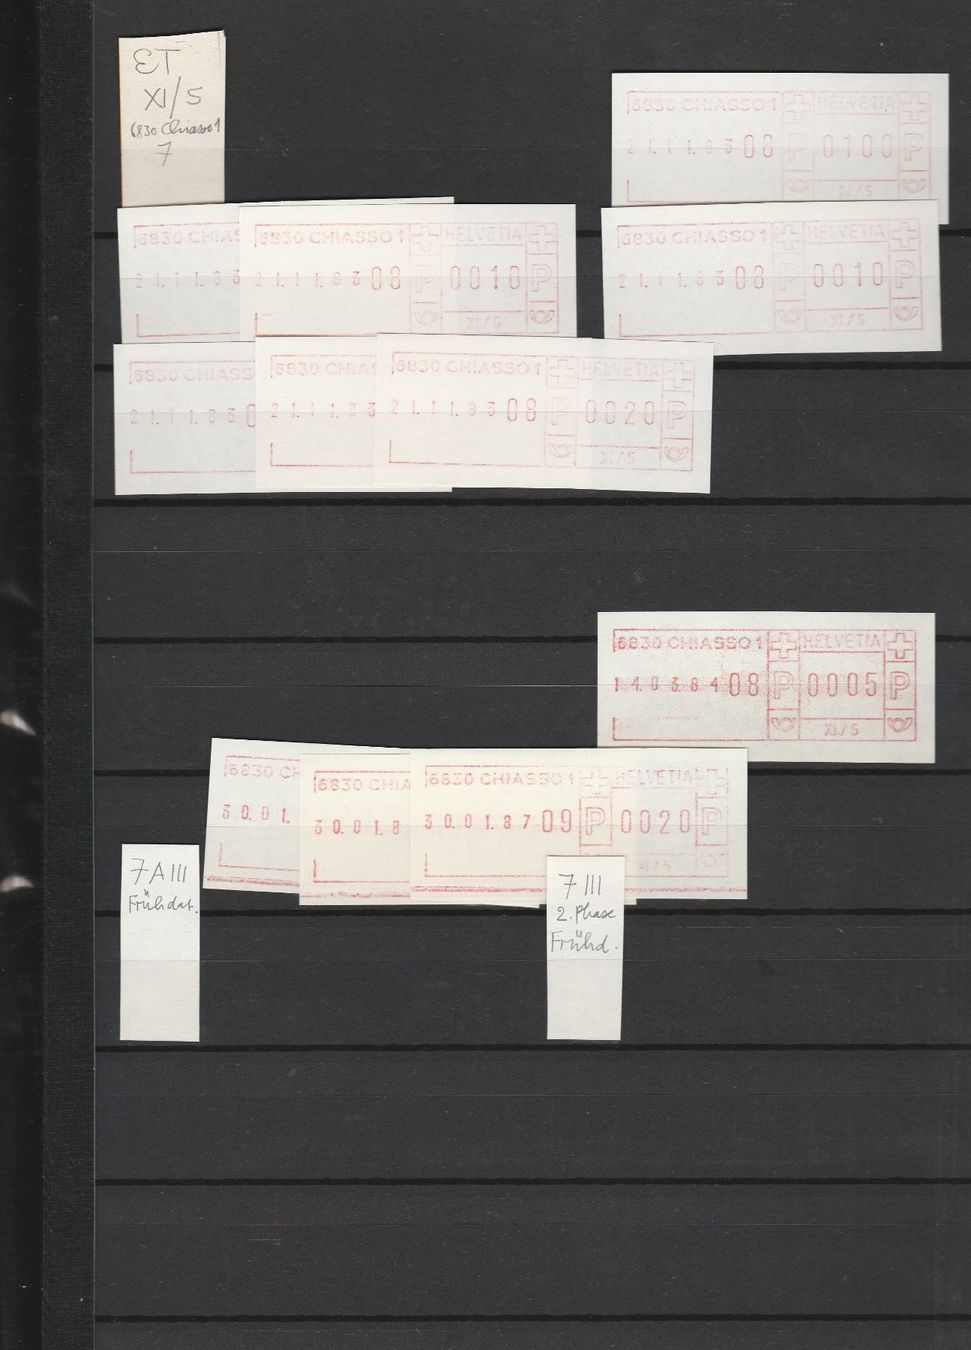 ET
XI/5
6830 Chiasso 1
7
6830 CHIASSO 1 HELVETIA
21.11.8308 P 0100 P
XI/5
6830 CHIAS
21.11.83
6830 CHIASSO 1 HELVETIA
21.11.8308 P 0010 P
XI/5
6830 CHIASSO 1 HELVETIA
21.11.8308 P 0010 P
XI/5
6830 CHIASS
21.11.830
6830 CHIAS
21.11.83
6830 CHIASSO 1 HELVETIA
21.11.8308 P 0020 P
XI/5
6830 CHIASSO 1 HELVETIA
14.03.8408 P 0005 P
XI/5
6830 CH
30.01.
6830 CHIA
30.01.8
6830 CHIASSO 1 HELVETIA
30.01.8709 P 0020 P
/5
7 A III
Frühdat.
7 III
2. Phase
Frühd.